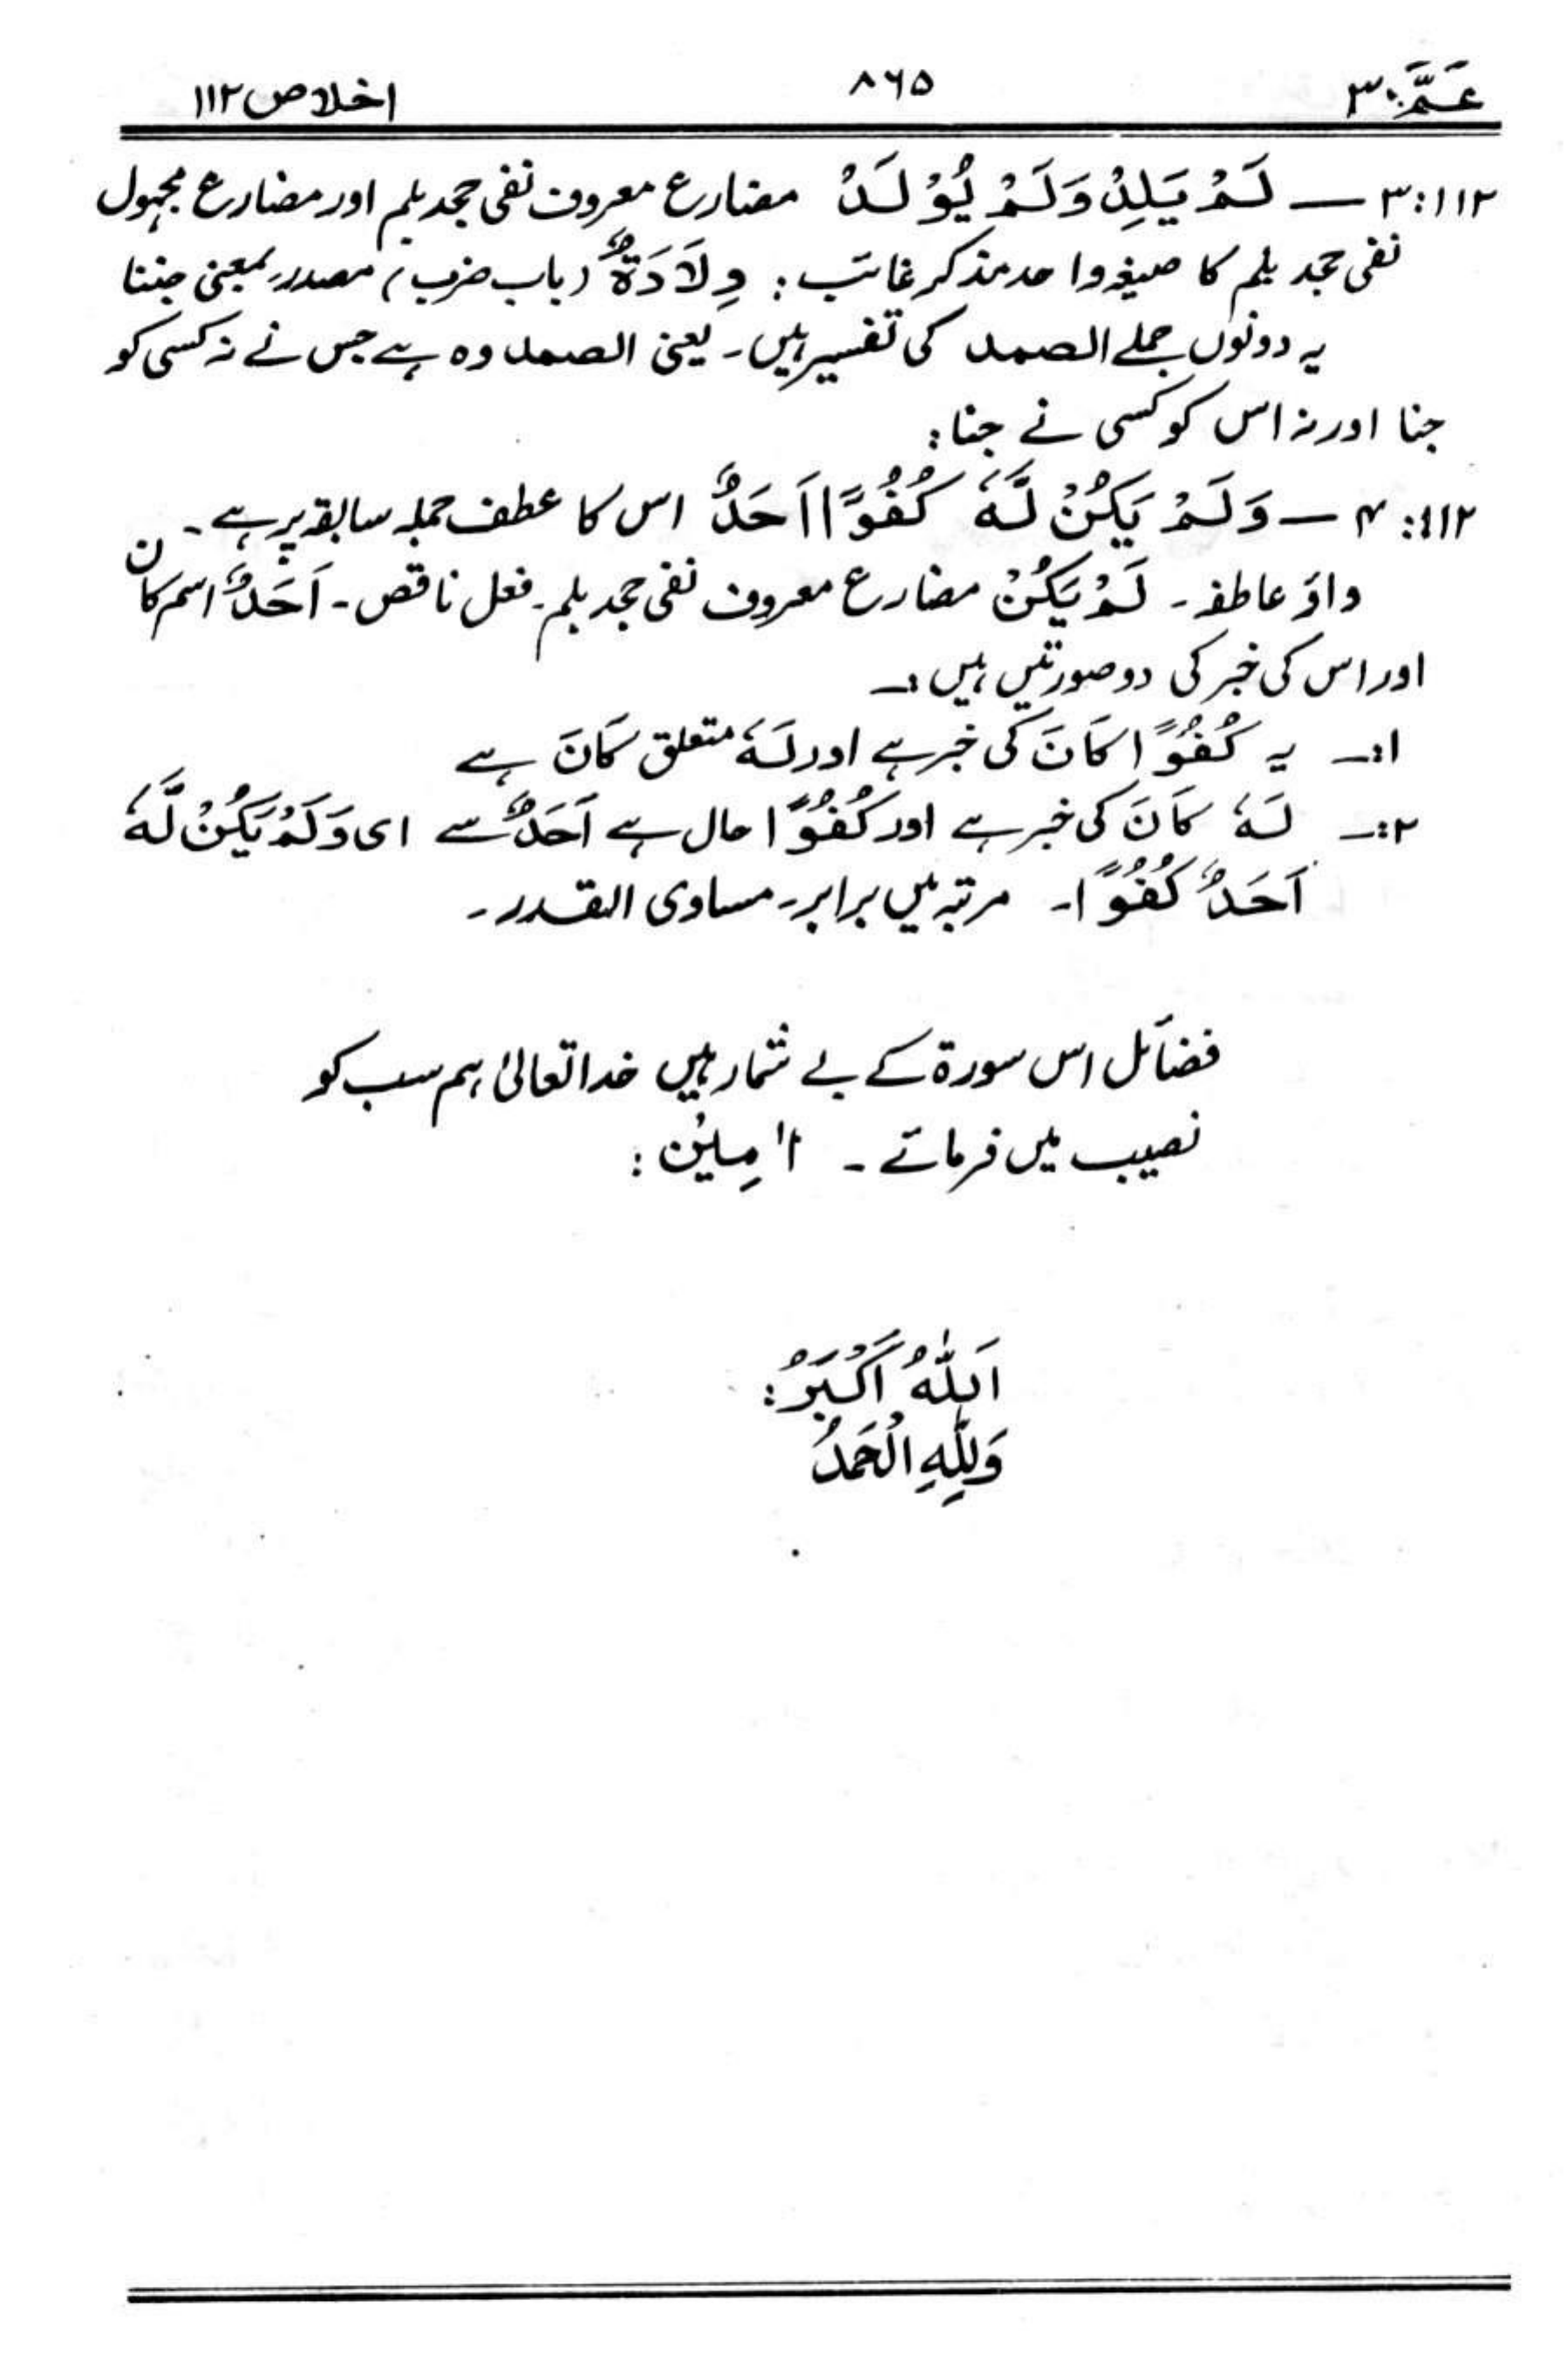 عَمَّ ۳۰ ۸۶۵ اخلاص ۱۱۲
۱۱۲:۳ — لَمْ يَلِدْ وَلَمْ يُوْلَدْ مضارع معروف نفی جحد بلم اور مضارع مجہول
نفی جحد بلم کا صیغہ واحد مذکر غائب : وِلَادَةٌ (باب ضرب) مصدر بمعنی جننا
یہ دونوں جملے الصمد کی تفسیر ہیں۔ یعنی الصمد وہ ہے جس نے نہ کسی کو
جنا اور نہ اس کو کسی نے جنا :
۱۱۲:۴ — وَلَمْ يَكُنْ لَّهٗ كُفُوًا اَحَدٌ اس کا عطف جملہ سابقہ پر ہے۔
واؤ عاطفہ۔ لَمْ يَكُنْ مضارع معروف نفی جحد بلم۔ فعل ناقص۔ اَحَدٌ اسم کان
اور اس کی خبر کی دو صورتیں ہیں :۔
۱:۔ یہ كُفُوًا کَانَ کی خبر ہے اور لَهٗ متعلق کَانَ ہے
۲:۔ لَهٗ کَانَ کی خبر ہے اور كُفُوًا حال ہے اَحَدٌ سے ای وَلَمْ يَكُنْ لَّهٗ
اَحَدٌ كُفُوًا۔ مرتبہ میں برابر۔ مساوی القدر۔
فضائل اس سورة کے بے شمار ہیں خدا تعالیٰ ہم سب کو
نصیب میں فرمائے۔ اٰمِیْن :
اَللّٰهُ اَكْبَرُ :
وَلِلّٰهِ الْحَمْدُ